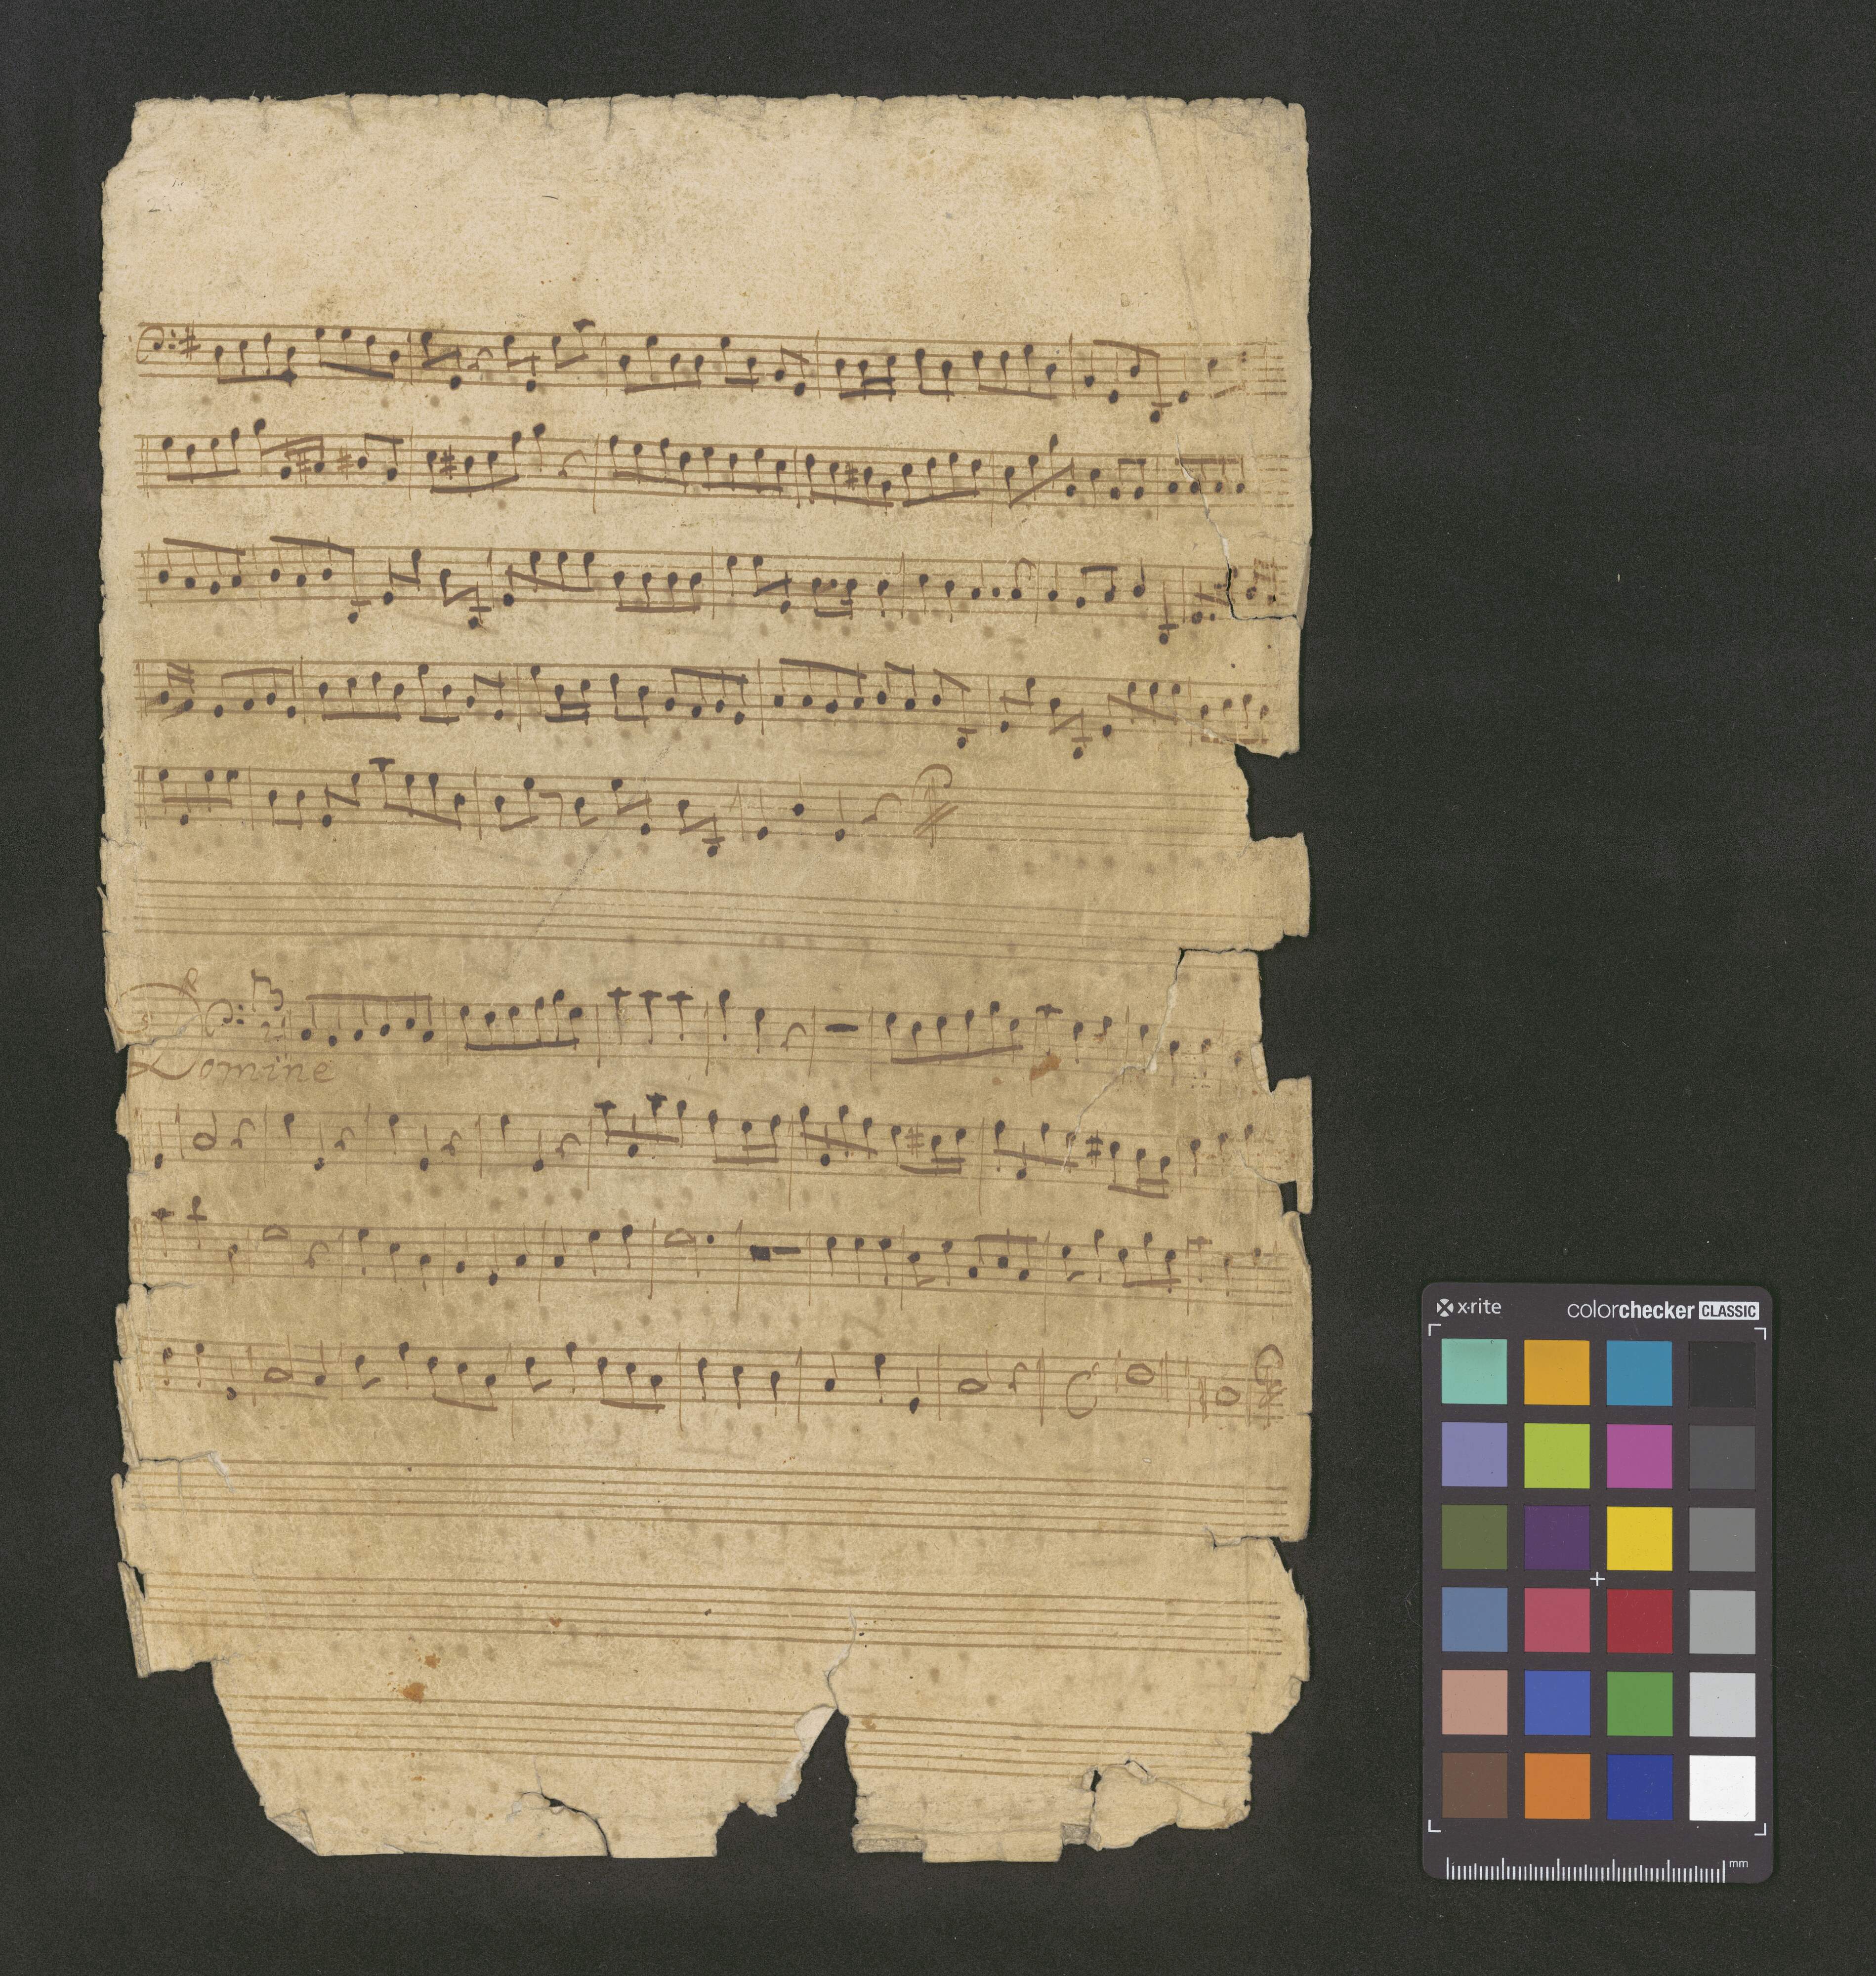 Domine
x·rite
colorchecker CLASSIC
mm